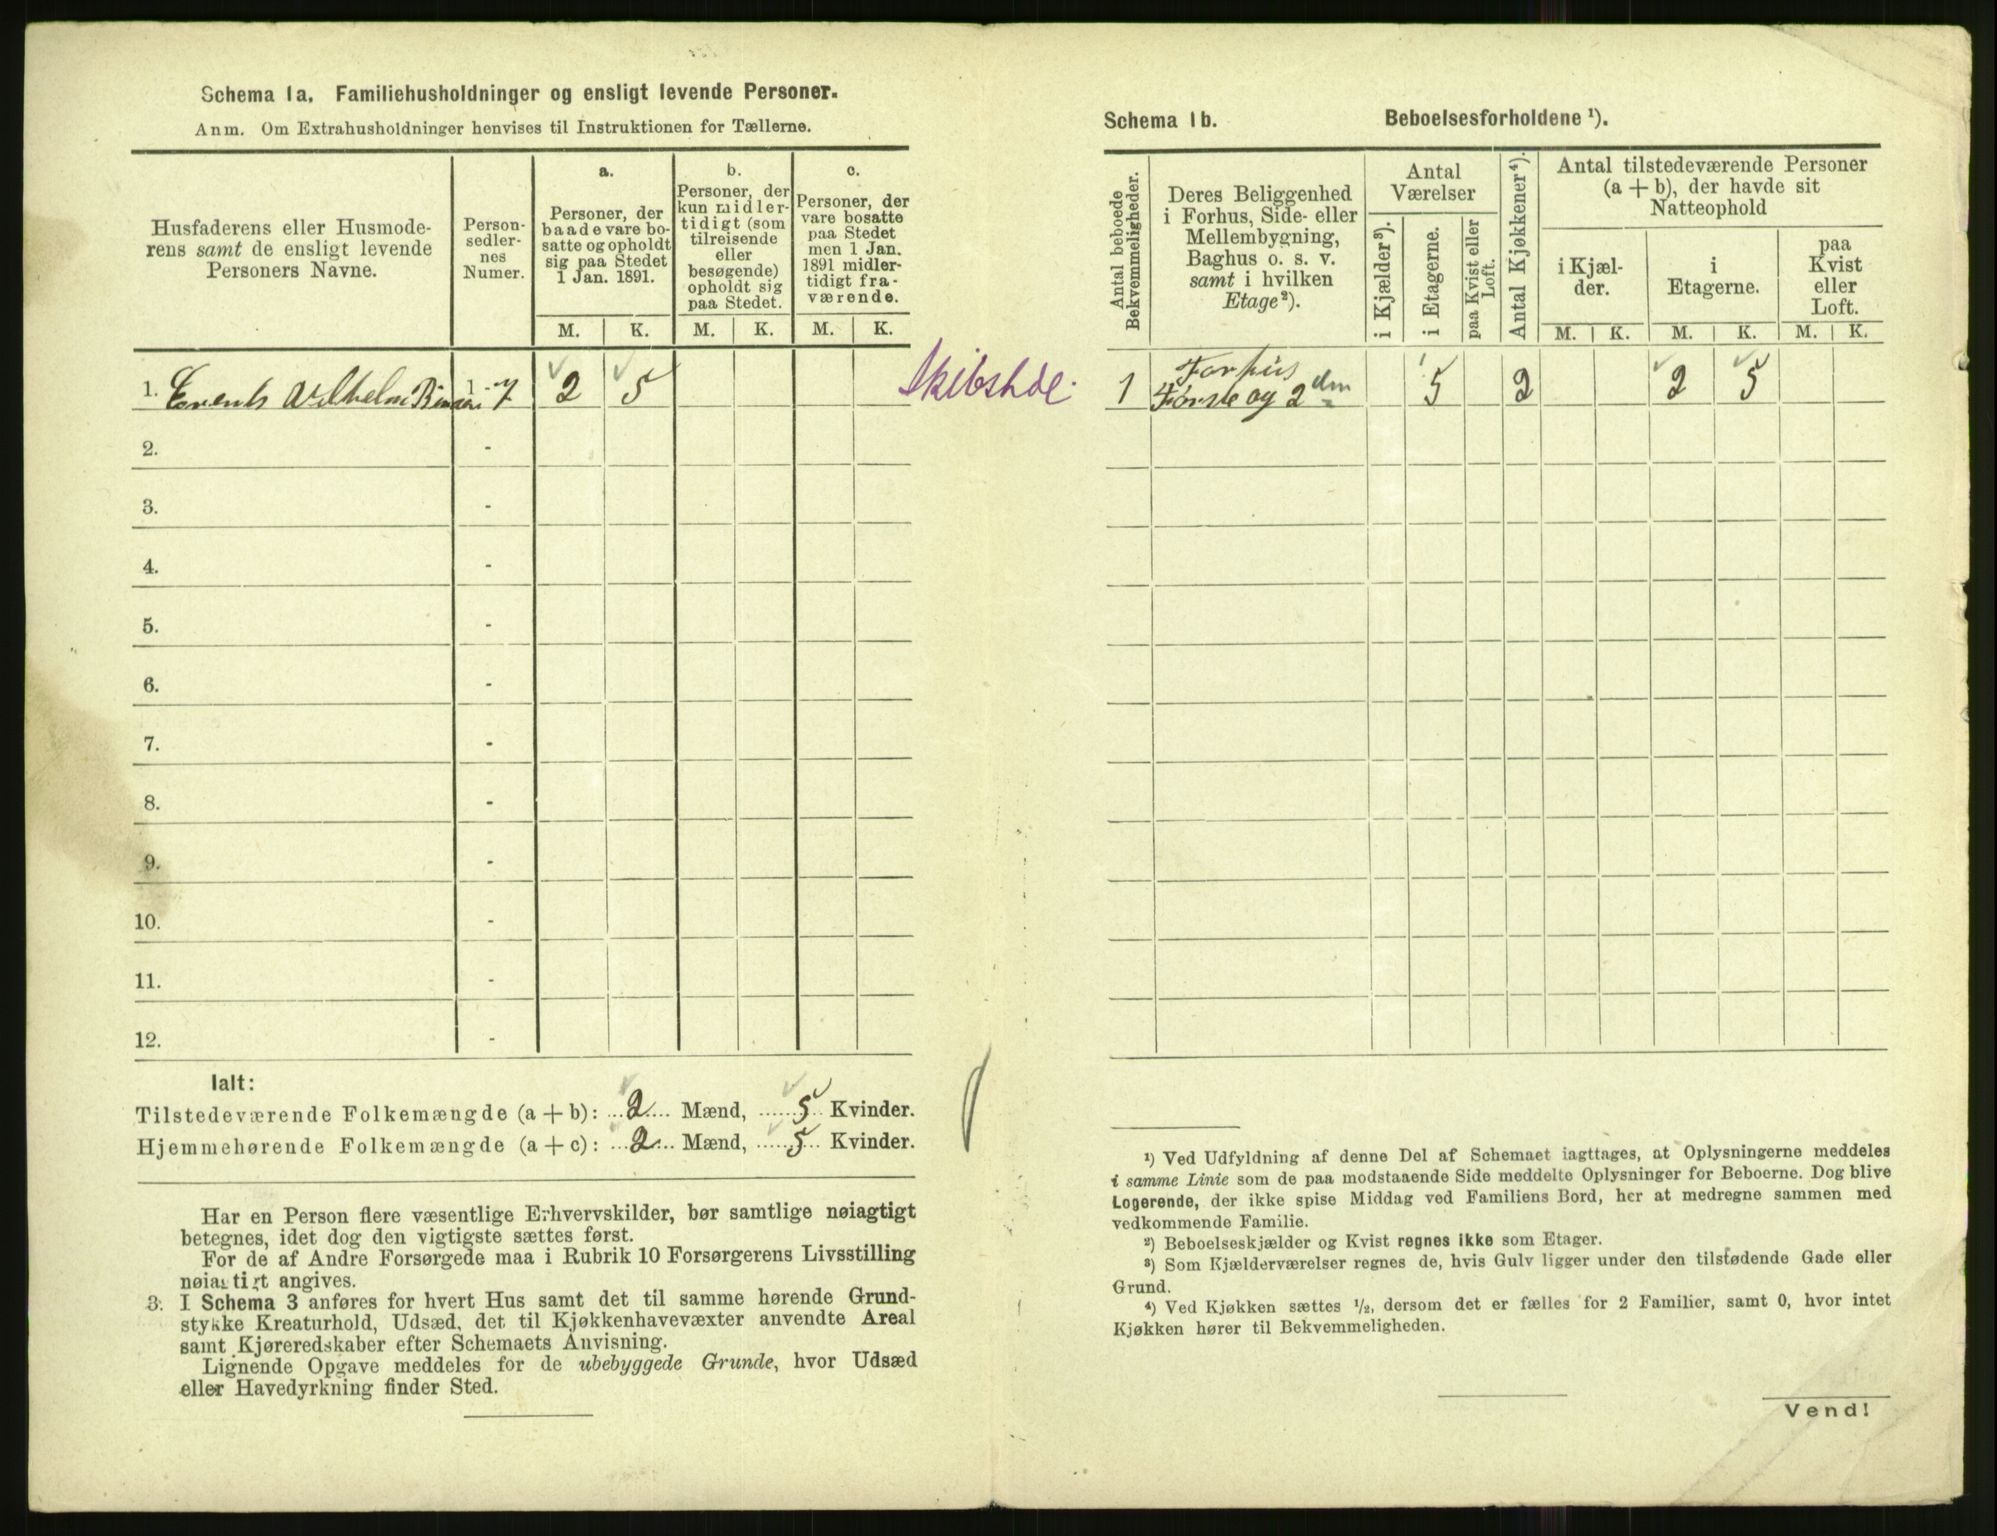 Schema 1a. Familiehusholdninger og ensligt levende Personer.
Anm. Om Extrahusholdninger henvises til Instruktionen for Tællerne.
Husfaderens eller Husmode-
rens samt de ensligt levende
Personers Navne.
Person-
sedler-
nes
Numer.
a.
Personer, der
baade vare bo-
satte og opholdt
sig paa Stedet
1 Jan. 1891.
b.
Personer, der
kun midler-
tidigt (som
tilreisende
eller
besøgende)
opholdt sig
paa Stedet.
c.
Personer, der
vare bosatte
paa Stedet
men 1 Jan.
1891 midler-
tidigt fra-
værende.
M. K. M. K. M. K.
1. Wilhelm 1 - 7 2 5
2. -
3. -
4. -
5. -
6. -
7. -
8. -
9. -
10. -
11. -
12. -
Ialt:
Tilstedeværende Folkemængde (a + b): 2 Mænd, 5 Kvinder.
Hjemmehørende Folkemængde (a + c): 2 Mænd, 5 Kvinder.
Har en Person flere væsentlige Erhvervskilder, bør samtlige nøiagtigt
betegnes, idet dog den vigtigste sættes først.
For de af Andre Forsørgede maa i Rubrik 10 Forsørgerens Livsstilling
nøiagtigt angives.
3. I Schema 3 anføres for hvert Hus samt det til samme hørende Grund-
stykke Kreaturhold, Udsæd, det til Kjøkkenhavevæxter anvendte Areal
samt Kjøreredskaber efter Schemaets Anvisning.
Lignende Opgave meddeles for de ubebyggede Grunde, hvor Udsæd
eller Havedyrkning finder Sted.
Schema 1b. Beboelsesforholdene ¹).
Antal beboede
Bekvemmeligheder.
Deres Beliggenhed
i Forhus, Side- eller
Mellembygning,
Baghus o. s. v.
samt i hvilken
Etage²).
Antal
Værelser
i Kjælder³).
i Etagerne.
paa Kvist eller
Loft.
Antal Kjøkkener⁴).
Antal tilstedeværende Personer
(a + b), der havde sit
Natteophold
i Kjæl-
der.
i
Etagerne.
paa
Kvist
eller
Loft.
M. K. M. K. M. K.
Forhus
1 Første og 2den 5 2 2 5
¹) Ved Udfyldning af denne Del af Schemaet iagttages, at Oplysningerne meddeles
i samme Linie som de paa modstaaende Side meddelte Oplysninger for Beboerne. Dog blive
Logerende, der ikke spise Middag ved Familiens Bord, her at medregne sammen med
vedkommende Familie.
²) Beboelseskjælder og Kvist regnes ikke som Etager.
³) Som Kjælderværelser regnes de, hvis Gulv ligger under den tilstødende Gade eller
Grund.
⁴) Ved Kjøkken sættes ½, dersom det er fælles for 2 Familier, samt 0, hvor intet
Kjøkken hører til Bekvemmeligheden.
Vend!